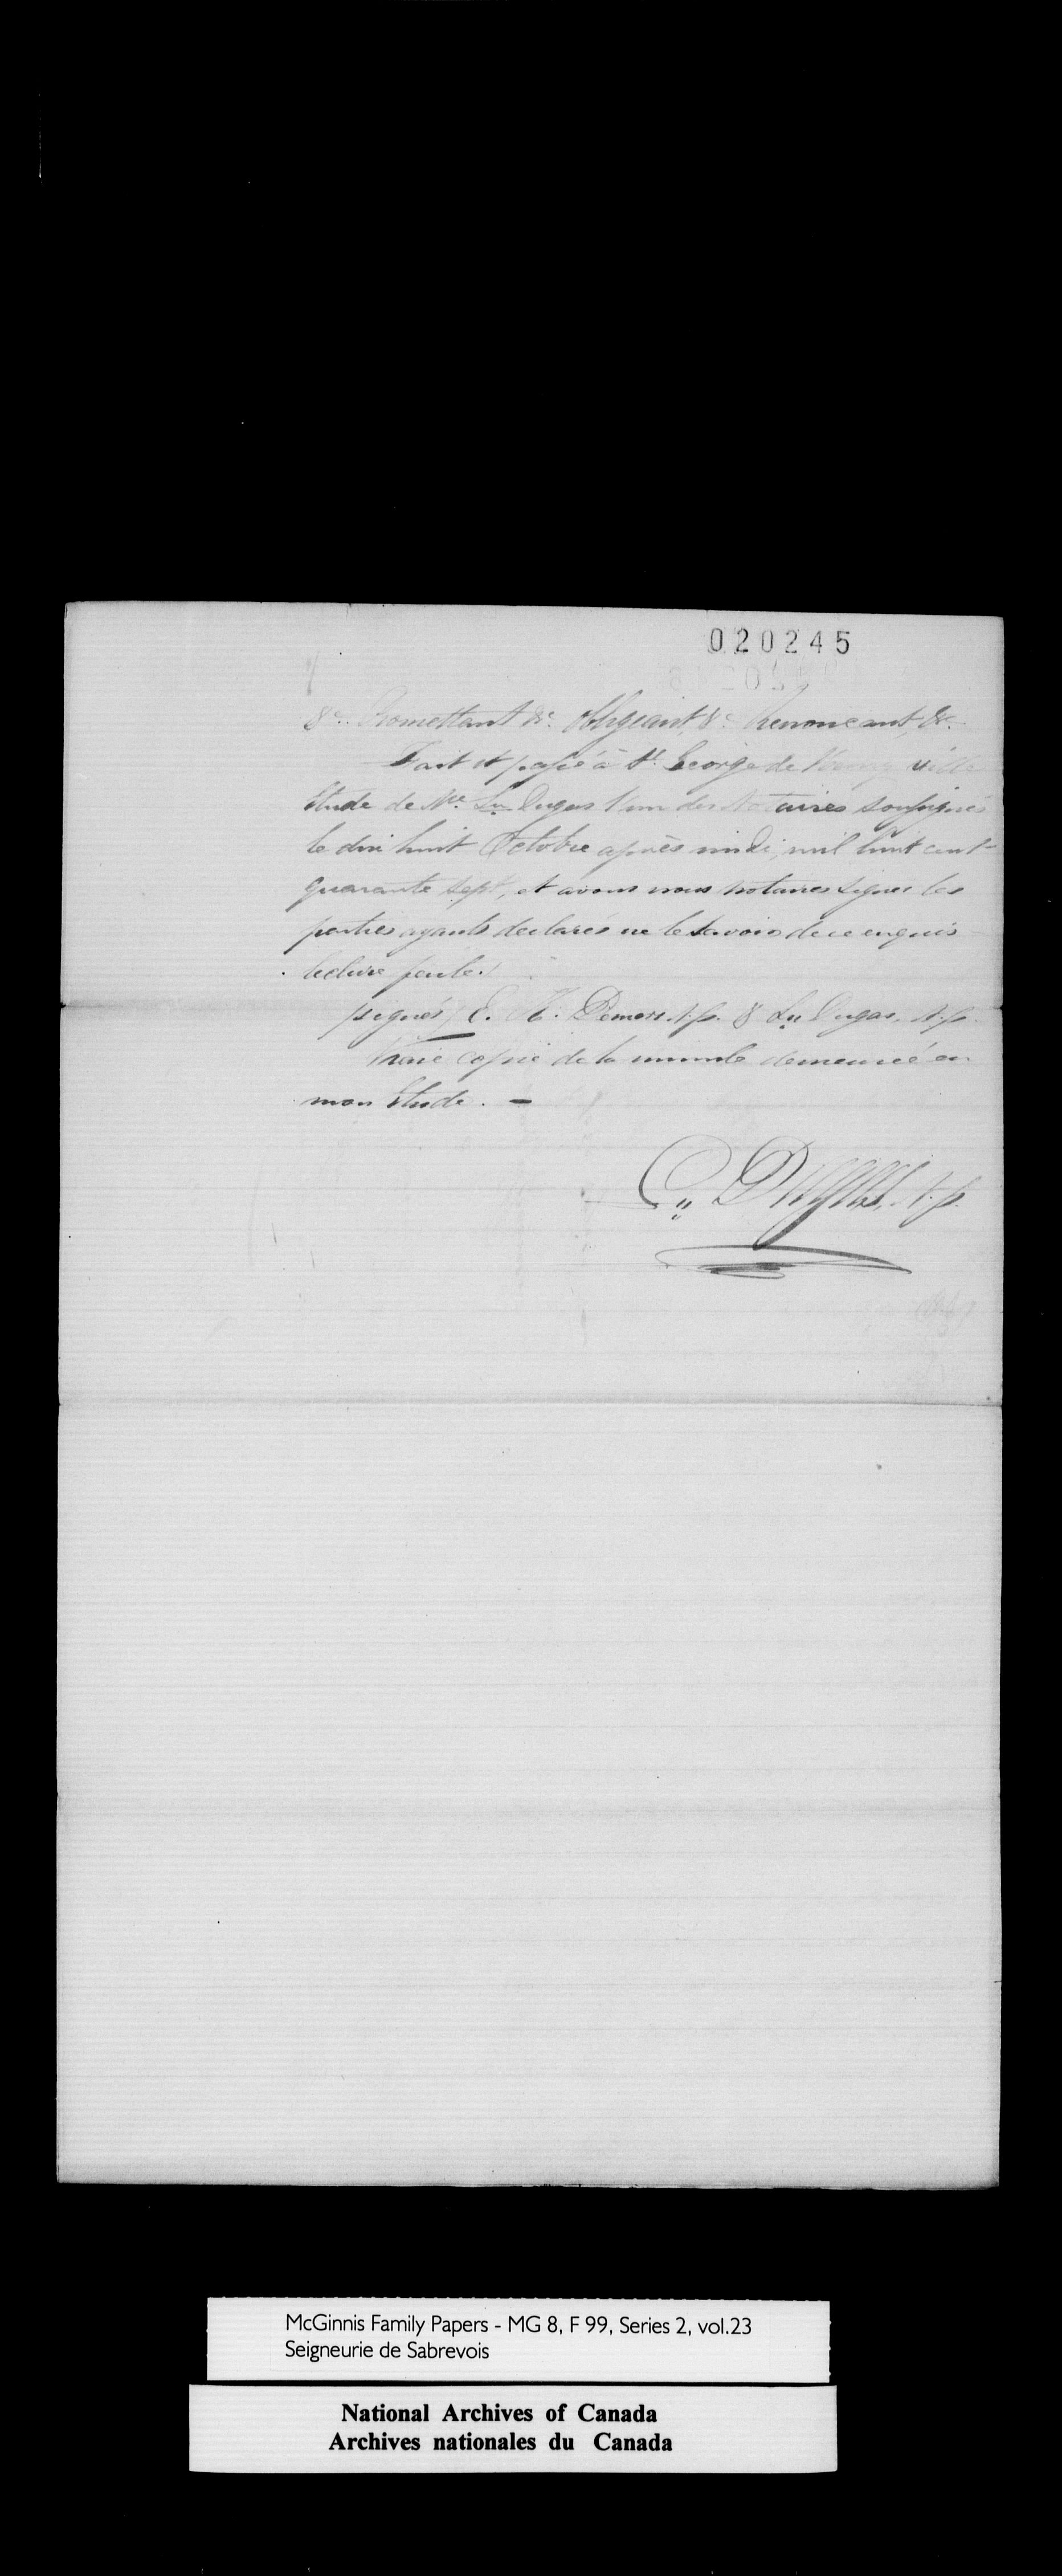 020245
&c. Promettant &c. Obligeant, &c. Renonceant, &c.
Fait et passé à St. George de Henry ville
Etude de Me. Ln. Dugas l'un des Notaires soussignés
le dix huit Octobre après midi, mil huit cent
quarante sept, et avons nous notaires signés les
parties ayants declarés ne le savoir de ce enquis
lecture faite.
signés / E. R. Demers N.p. & Ln Dugas. N.p.
Vraie copie de la minute demeurée en
mon Etude. —
Dugas, N.p.
McGinnis Family Papers - MG 8, F 99, Series 2, vol.23
Seigneurie de Sabrevois
National Archives of Canada
Archives nationales du Canada